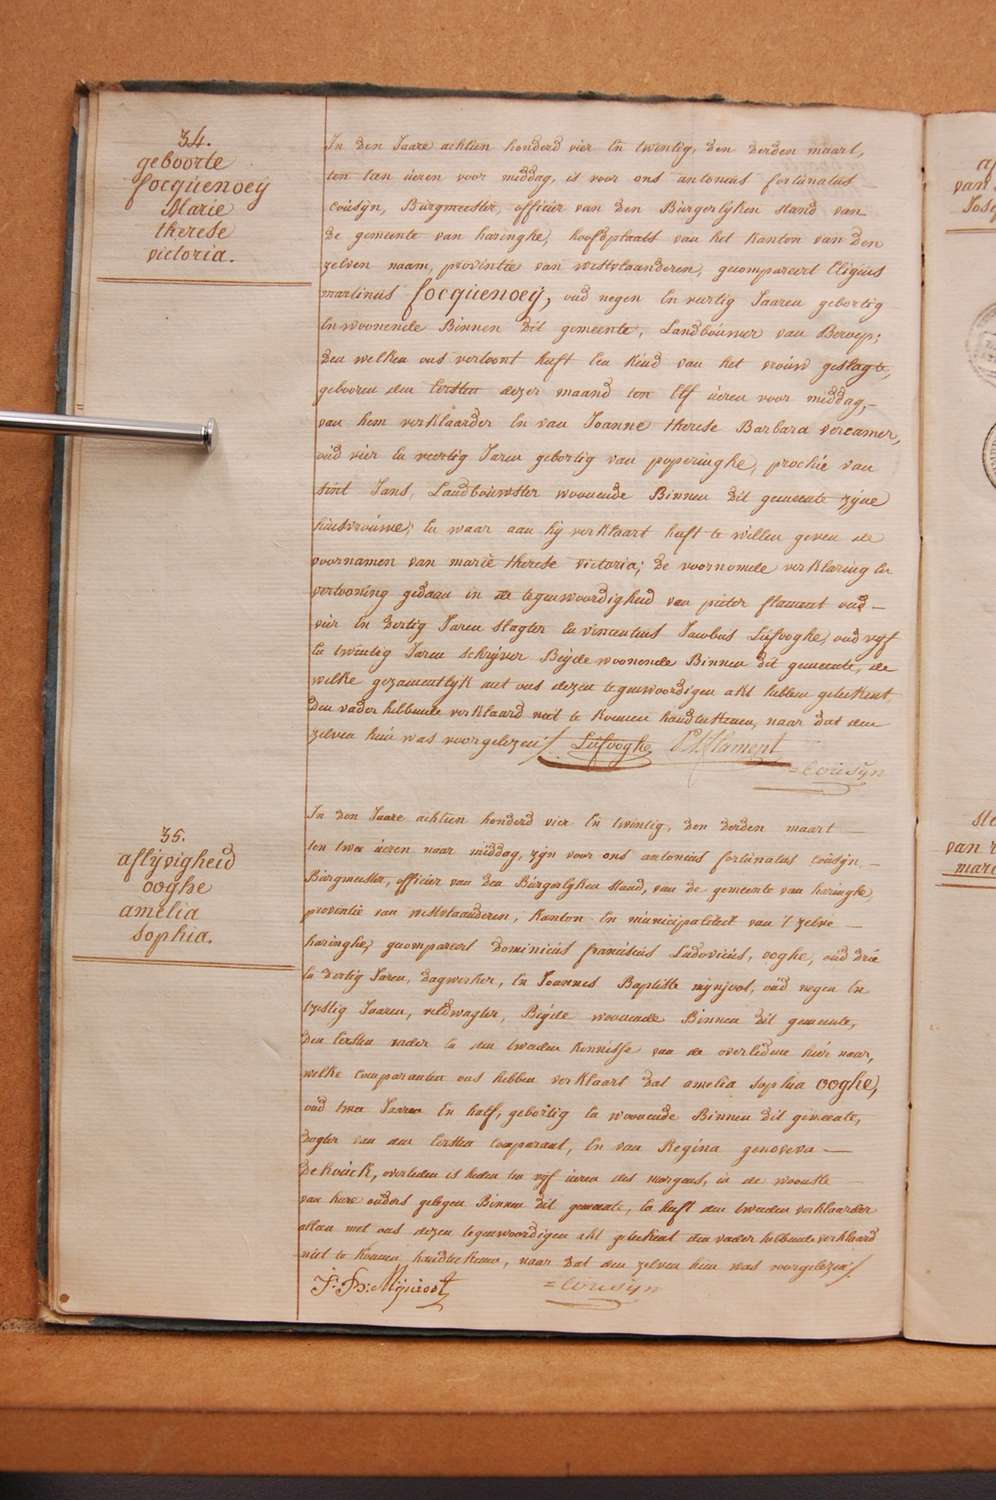 34.
geboorte
focquenoeÿ
Marie
therese
victoria.
In den Jaare achtien honderd vier En twintig, den derden maart,
ten tien üeren voor middag, is voor ons antonius fortúnatús
Coúsÿn, Búrgmeester, officier van den Búrgerlÿken stand van
de gemeente van haringhe, hoofdplaats van het Kanton van den
zelven naam, provintie van westvlaanderen, gecompareert Eligiús
martinús focquenoeÿ, oud negen En veertig Jaaren gebortig
En woonende Binnen dit gemeente, Landboúwer van Beroep;
den welken ons vertoont heeft Een Kind van het vroúw geslagte,
gebooren den Eersten dezer maand ten Elf úeren voor middag,
van hem verklaarder En van Joanne therese Barbara vercamer,
oúd vier En veertig Jaren gebortig van poperinghe, prochie van
sint Jans, Landboúwster woonende Binnen dit gemeente zÿne
húisvroúwe; En waar aan hÿ verklaart heeft te willen geven de
voornamen van marie therese victoria; de voornomde verklaring En
vertooning gedaan in de tegenwoordigheid van pieter flament oud
vier En dertig Jaren slagter En vincentius Jacobús Liefooghe, oud vyf
En twintig Jaren schrÿver Beÿde woonende Binnen dit gemeente, de
welke gezamentlÿk met ons dezen tegenwoordigen akt hebben geteekent
den vader hebbende verklaard niet te konnen handteekenen, naar dat den
zelven hun was voorgelezen /. Liefooghe P. flament
= Coúsÿn
35.
aflÿvigheid
ooghe
amelia
sophia.
In den Jaare achtien honderd vier En twintig, den derden maart
ten twee úeren naar middag, zÿn voor ons antonius fortúnatus coúsÿn
Búrgmeester, officier van den Búrgerlÿken stand, van de gemeente van haringhe,
provintie van westvlaanderen, Kanton En múnicipaliteit van 't zelve
haringhe, gecompareert Dominicús franciscús Ludovicús, ooghe, oúd drie
En dertig Jaren, dagwerker, En Joannes Baptiste mÿnjoot, oúd negen En
tzestig Jaaren, veldwagter, Beÿde woonende Binnen dit gemeente,
den Eersten vader En den tweeden Kennisse van de overledene hier naar,
welke comparanten ons hebben verklaart dat amelia sophia ooghe,
oúd twee Jaaren En half, gebortig En woonende Binnen dit gemeente,
dogter van den Eersten comparant, En van Regina genoveva
Dekúick, overleden is heden ten vÿf úeren des morgens, in de woonste
van hare oúders gelegen Binnen dit gemeente, En heeft den tweeden verklaarder
alleen met ons dezen tegenwoordigen akt geteekent den vader hebbende verklaard
niet te konnen handteekenen, naar dat den zelven hun was voorgelezen /.
J: B: Mÿnjoot = Coúsÿn